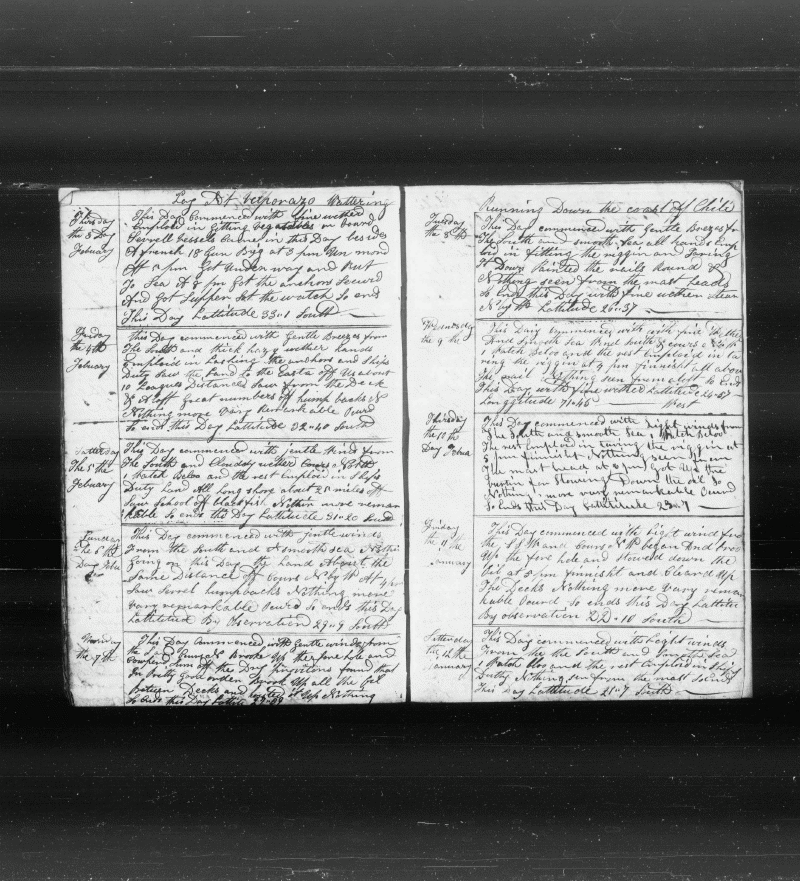 Log At Valporazo Wattering
Thursday
the 3 Day
February
This Day Commenced with fine wether
Emploid in Gitting vegatables on board
Severll vessels Came in this Day besides
A french 18 Gun Brig at 3 pm Un mord
At pm Got Underway and Put
To Sea At 8 pm Got the anchors Secured
And Got Supper Set the watch So ends
This Day Lattitude 33"1 South
Friday
the 4th
February
This Day commenced with Gentle Breezes from
The South and thick hazy wether hands
Emploid in Lashing the anchors and Ships
Duty Saw the Land to the Easta off us about
10 Leagues Distance Saw from the Deck
& Aloft Great numbers off hump backs &
Nothing more vary Remarkable Ocurd
So ends this Day Lattitude 32"40 South
Satturday
The 5th
February
This Day commenced with jentle wind from
The South and Clouddy wether Cours
Watch Below and the rest Emploid in Ships
Duty Land All long shore about 25 miles off
Saw School of blackfish Nothin more remar
kable So ends the Day Lattitude 31"20 South
the 6
Day
This Day commenced with jentle winds
From the South and A smooth sea Nothin
Going on this Day the Land Abought the
Same Distance off Cours N by W At 4 pm
Saw Severl humpbacks Nothing more
vary remarkable Ocurd So ends this Day
Lattitude By Observation 29"9 South
Monday
the 7th
This Day commenced with Gentle winds from
the S and Broake Up the fore hole and
off the Day provisions found that
In Pritty Good order Broak Up all the Oil
Between Decks and Up Nothing
So ends this Day Lattitude
Running Down the coast of Chili
Tuesday
the 8 th
This Day commenced with Gentle Breezes from
The South and smooth Sea all hands Emp
loi in fitting the riggin and Taring
Down Painted the rails Round &
Nothing seen from the mast heads
So Ends this Day with fine wether
N by W Lattitude 26"37
Wednesday
the 9 the
This Day commences with with fine wether
And smooth Sea Wind South & cours
1 Watch beloo and the rest Emploid in ta
ring the riggin at 4 pm finisht all above
The rail Nothing seen from aloft So Ends
This Day with fine wether Lattitude 24"57
Longgitude 71"45 West
Thursday
the 10 th
Day
This Day commenced with Light winds from
The South and smooth Sea 1 Watch beloo
The rest Emploid in taring the riggin at
finisht Nothing seen from
The mast head at 3 pm Got Up the
for Stowing Down the oil So
Nothing more vary remarkable Ocurd
So Ends this Day Lattitude 23"7
Friday
the 11 the
January
This Day commenced with light wind from
the and Cours began And broo
Up the fore hole and Stowed down the
Oil at 5 pm finisht and Cleard Up
The Decks Nothing more vary remar
kable Ocurd So ends this Day Lattitu
By observation 22"10 South
Satterday
the 12 th
January
This Day commenced with Light winds
From the the South and Smooth Sea
1 Watch Bloo and the rest Emploid in Ships
Dutty Nothing sen from the mast So ends
This Day Lattitude 21"7 South